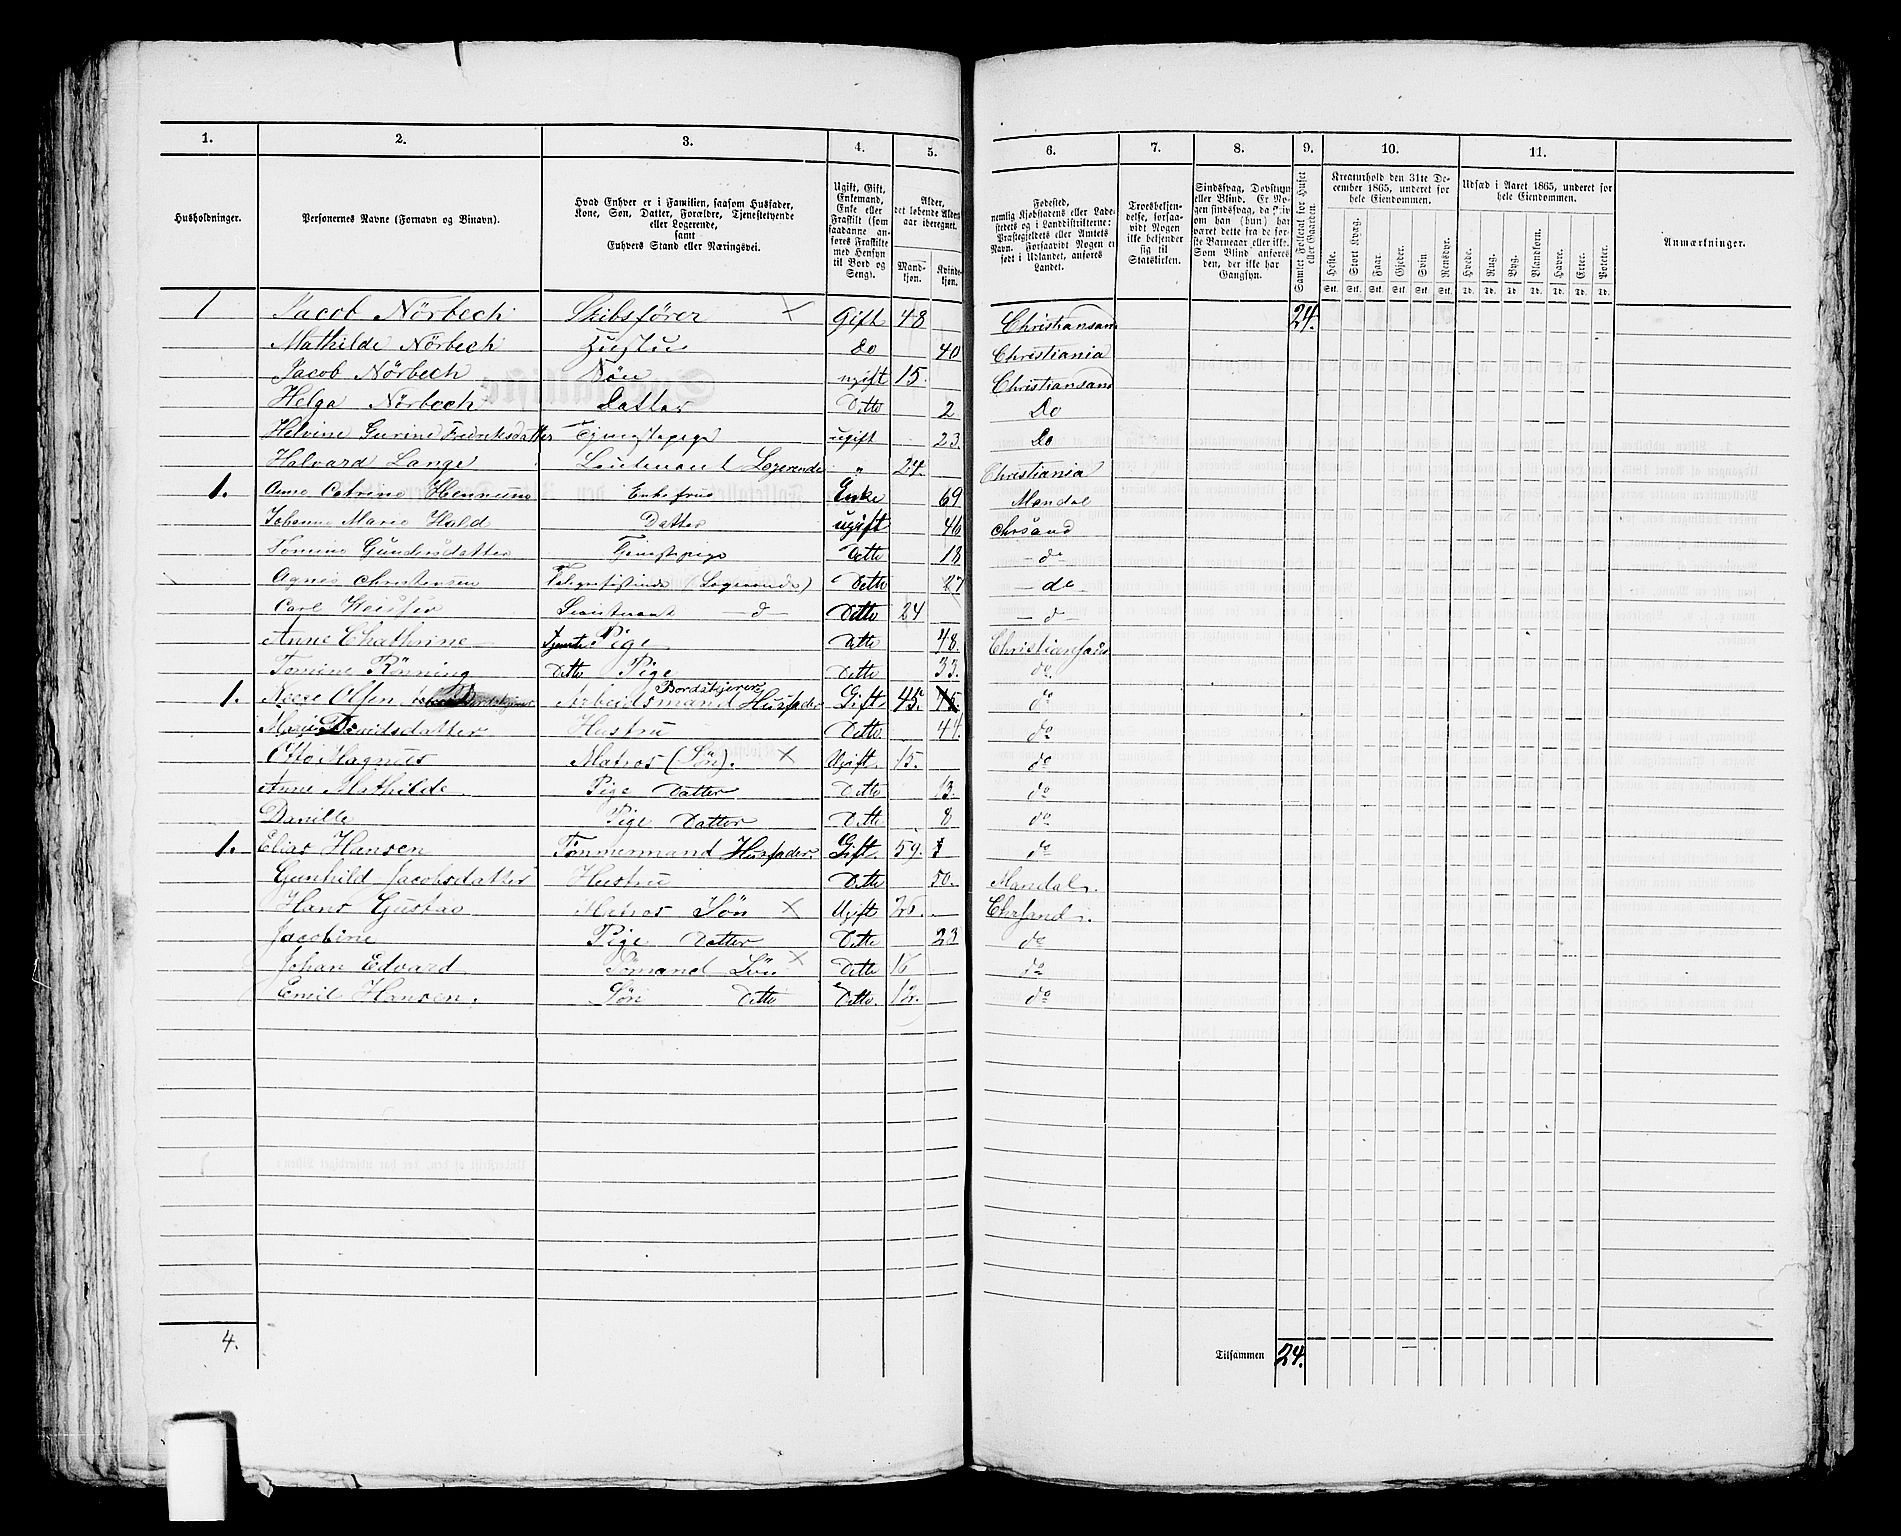 1. 2. 3. 4. 5. 6. 7. 8. 9. 10. 11.
Husholdninger.
Personernes Navne (Fornavn og Binavn).
Hvad Enhver er i Familien, saasom Husfader, Kone, Søn, Datter, Forældre, Tjenestetyende eller Logerende, samt Enhvers Stand eller Næringsvei.
Ugift, Gift, Enkemand, Enke eller Fraskilt (som saadanne anføres Fraskilte med Hensyn til Bord og Seng).
Alder, det løbende Alders­aar iberegnet.
Mandkjøn. Kvindekjøn.
Fødested, nemlig Kjøbstadens eller Ladestedets og i Landdistrikterne: Præstegjeldets eller Amtets Navn. Forsaavidt Nogen er født i Udlandet, anføres Landet.
Troesbekjendelse, forsaavidt Nogen ikke bekjender sig til Statskirken.
Sindssvag, Døvstum eller Blind. Er Nogen sindssvag, da hvorvidt han (hun) har været dette fra de første Barneaar eller ikke. Som Blind anføres den, der ikke har Gangsyn.
Samlet Folketal for Huset eller Gaarden.
Kreaturhold den 31te December 1865, underet for hele Eiendommen.
Heste. Stort Kvæg. Faar. Gjeder. Svin. Rensdyr.
Stk. Stk. Stk. Stk. Stk. Stk.
Udsæd i Aaret 1865, underet for hele Eiendommen.
Hvede. Rug. Byg. Blandkorn. Havre. Erter. Poteter.
Td. Td. Td. Td. Td. Td. Td.
Anmærkninger.
1 Jacob Nörbech Skibsförer × Gift 48 Christiansand 24.
Mathilde Nörbech Hustru Do 40 Christiania
Jacob Nörbech Sön ugift 15. Christiansand
Helga Nörbech Datter Ditto 2 Do
Helvine Gurine Fredriksdatter Tjenestepige ugift 23 Do
Halvard Lange Leutenant Logerende " 24. Christiania
1. Anne Catrine Hennum Enkefrue Enke 69 Mandal
Johanne Marie Hald Datter ugift 46 Chrsand
Tomine Gundersdatter Tjenestepige Ditto 18 - do -
Agnes Christensen Telegrafistinde (Logerende) Ditto 27 - do -
Carl Lieutenant - d - Ditto 24 - d -
Anne Chathrine Tjeneste Pige Ditto 48. Christiansads
Tomine Rönning Ditto Pige Ditto 33. do.
1. Olsen Arbeidsmand Bordskjerer Husfader Gift 45. 45. do
Daniltsdatter Hustru Ditto 44. do
Otto Magnus Matros (Sön). × Ugift. 15. do
Anne Mathilde Pige Datter Ditto 13. do
Danille Pige Datter Ditto 8 do
1. Elias Hansen Tömmermand Husfader. Gift. 59. do
Gunhild Jacobsdatter Hustru Ditto 50. Mandal.
Hans Gustav Matros Sön × Ugift Chrsand.
Jacobine Pige Datter Ditto 23 do
Johan Edvard Tömand Sön × Ditto 16 do
Emil Hansen. Sön Ditto Ditto 12. do
4. Tilsammen 24. —